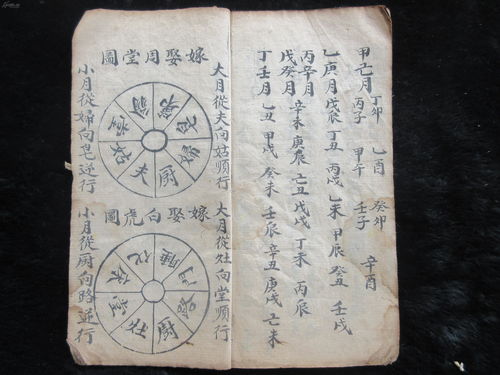 甲己月 丁卯 丙子 甲午 乙酉 癸卯 壬子 辛酉
乙庚月 戊辰 丁丑 丙戌 乙未 甲辰 癸丑 壬戌
丙辛月
戊癸月 辛未 庚辰 己丑 戊戌 丁未 丙辰
丁壬月 乙丑 甲戌 癸未 壬辰 辛丑 庚戌 己未
大月從夫向姑順行
嫁娶周堂圖
夫 姑 堂 翁 第 婦 厨
小月從婦向皂逆行
大月從灶向堂順行
嫁娶白虎圖
灶 堂 床 睡 門 路 厨
小月從厨向路逆行